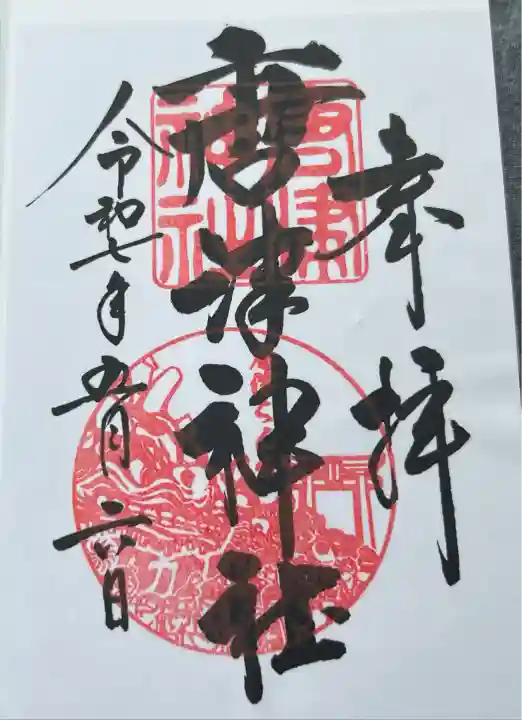 奉拝
唐津神社
唐津神社
令和七年五月六日